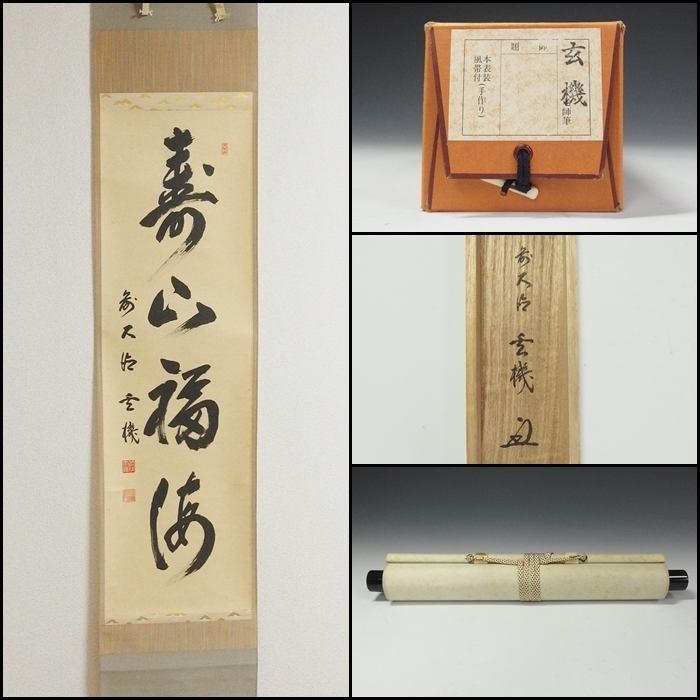 壽山福海
前大徳 玄機
玄機師筆
御題
本表装
風帯付(手作り)
前大徳 玄機